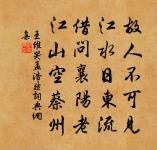 故人不可見
江水日東流
借問襄陽老
江山空蔡州
王維哭孟浩然詞典網